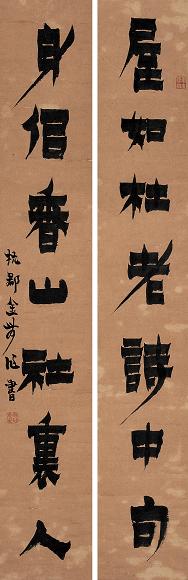 屋如杜老詩中句
身侣香山社裏人
杭郡金農作書